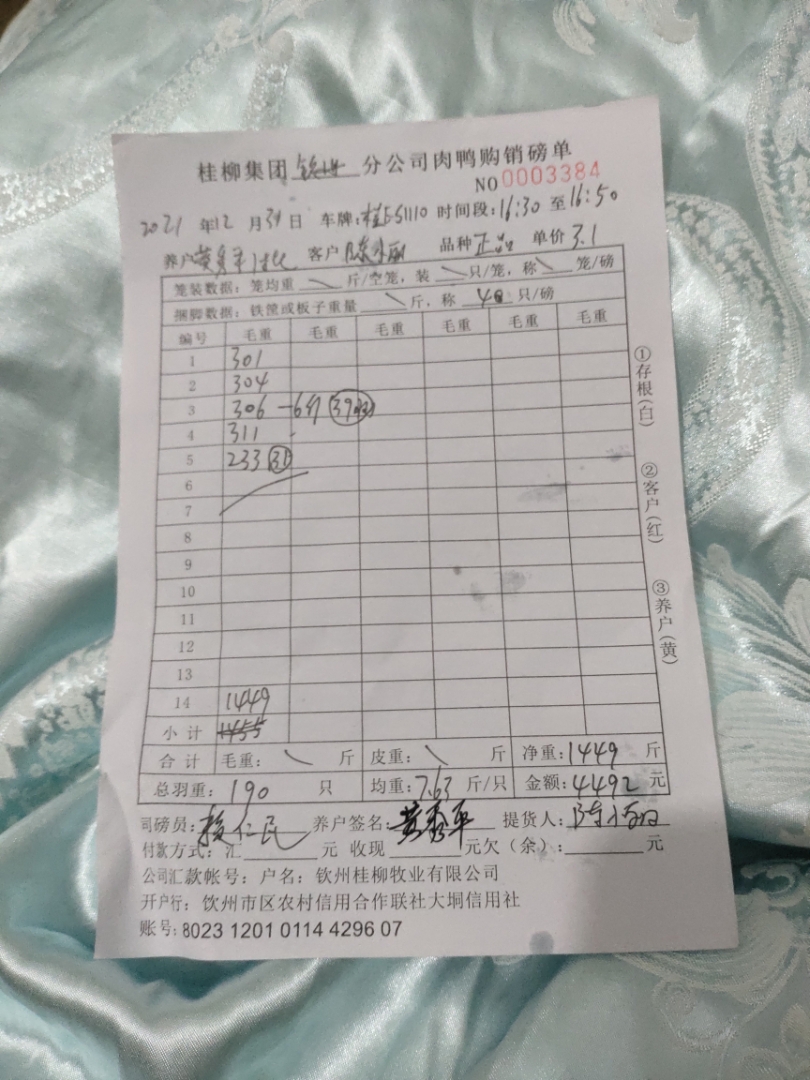 桂柳集团 钦州 分公司肉鸭购销磅单
NO 0003384
2021 年12 月31日 车牌:桂E51110 时间段:16:30 至16:50
养户 客户 品种 正品 单价 3.1
笼装数据: 笼均重 \ 斤/空笼, 装 \ 只/笼, 称 \ 笼/磅
捆脚数据: 铁筐或板子重量 \ 斤, 称 40 只/磅
编号 毛重 毛重 毛重 毛重 毛重 毛重
1 301
2 304
3 306 -6斤 (39只)
4 311
5 233 (31)
6
7
8
9
10
11
12
13
14 1449
小计 1455
合计 毛重: \ 斤 皮重: \ 斤 净重:1449 斤
总羽重: 190 只 均重:7.63 斤/只 金额:4492 元
司磅员: 仁民 养户签名: 黄秀平 提货人: 陈
付款方式: 汇 元 收现 元欠(余): 元
公司汇款帐号: 户名: 钦州桂柳牧业有限公司
开户行: 饮州市区农村信用合作联社大垌信用社
账号: 8023 1201 0114 4296 07
①存根(白)
②客户(红)
③养户(黄)